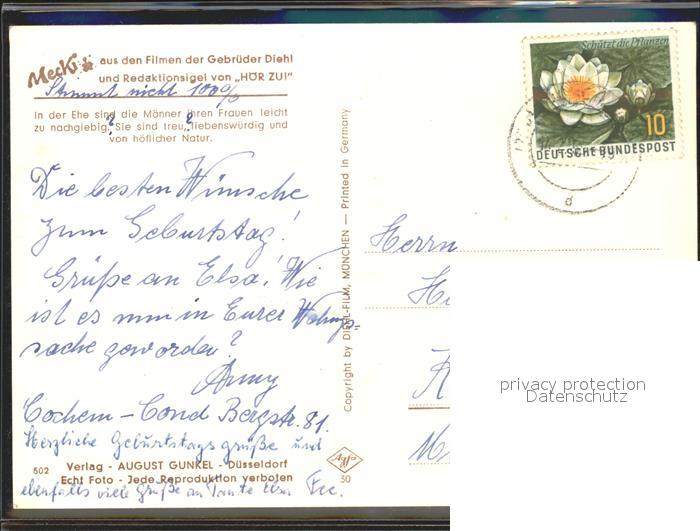 Mecki aus den Filmen der Gebrüder Diehl
und Redaktionsigel von „HÖR ZU!"
Stimmt nicht 100%
In der Ehe sind die Männer ihren Frauen leicht
zu nachgiebig. Sie sind treu, liebenswürdig und
von höflicher Natur.
Die besten Wünsche
zum Geburtstag!
Grüße an Elsa! Wie
ist es nun in Eurer Wohngs=
sache geworden?
Anny
Cochem – Cond Bergstr. 81.
Herzliche Geburtstagsgrüße und
502 Verlag - AUGUST GUNKEL - Düsseldorf
Echt Foto - Jede Reproduktion verboten
ebenfalls viele Grüße an Tante Elsa
Copyright by DIEHL-FILM, MÜNCHEN — Printed in Germany
Agfa
30
Schützt die Pflanzen
10
DEUTSCHE BUNDESPOST
d
Herrn
privacy protection
Datenschutz